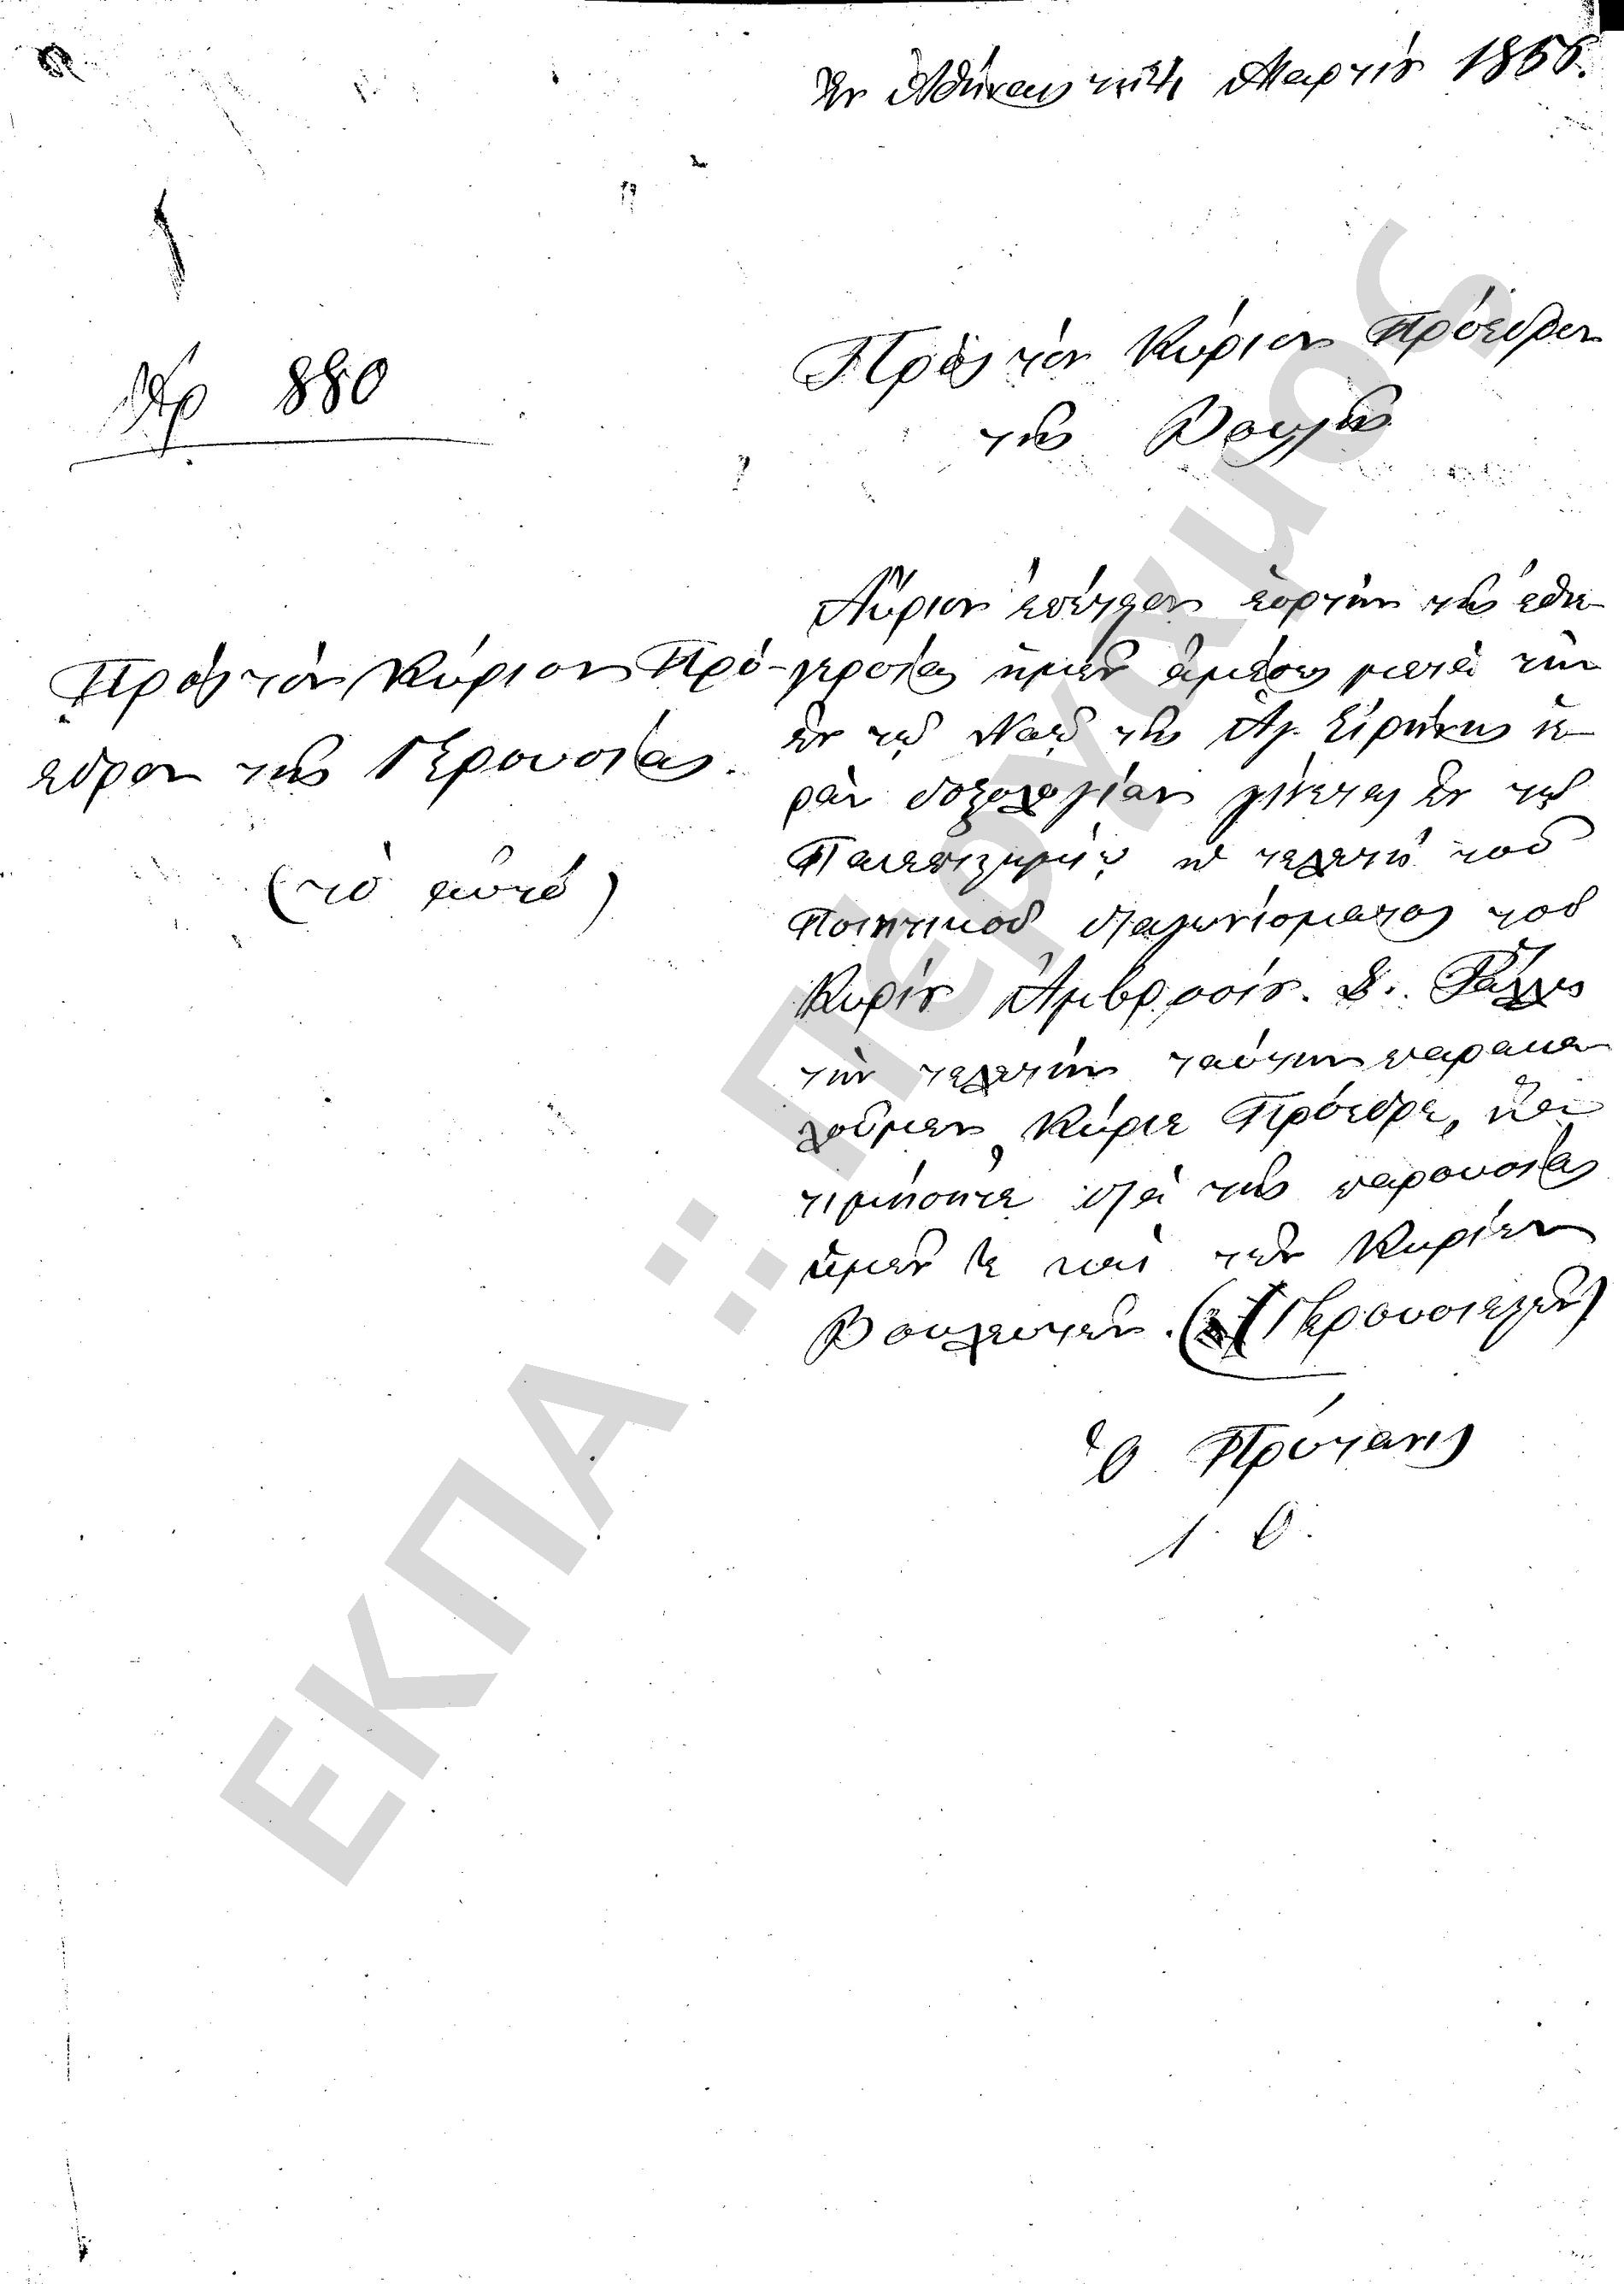 Ἐν Ἀθήναις τῇ 24 Μαρτίου 1855.
Ἀρ 880
Πρὸς τὸν Κύριον Πρόεδρον
τῆς Βουλῆς
Πρὸς τὸν Κύριον Πρό-
εδρον τῆς Γερουσίας.
(τὸ αὐτό)
Αὔριον ἐπέτειον ἑορτὴν τῆς ἐθνε-
γερσίας ἡμῶν ἀμέσως μετὰ τὴν
ἐν τῷ Ναῷ τῆς Ἁγ. Εἰρήνης ἱε-
ρὰν δοξολογίαν γίνεται ἐν τῷ
Πανεπιστημίῳ ἡ τελετὴ τοῦ
Ποιητικοῦ διαγωνίσματος τοῦ
Κυρίου Ἀμβροσίου. Σ. Ῥάλλη
τὴν τελετὴν ταύτην παρακα
λοῦμεν, Κύριε Πρόεδρε, ἵνα
τιμήσητε διὰ τῆς παρουσίας
ὑμῶν τε καὶ τῶν Κυρίων
Βουλευτῶν. (Γερουσιαστῶν)
Ὁ Πρύτανις
ΕΚΠΑ :: Πέργαμος